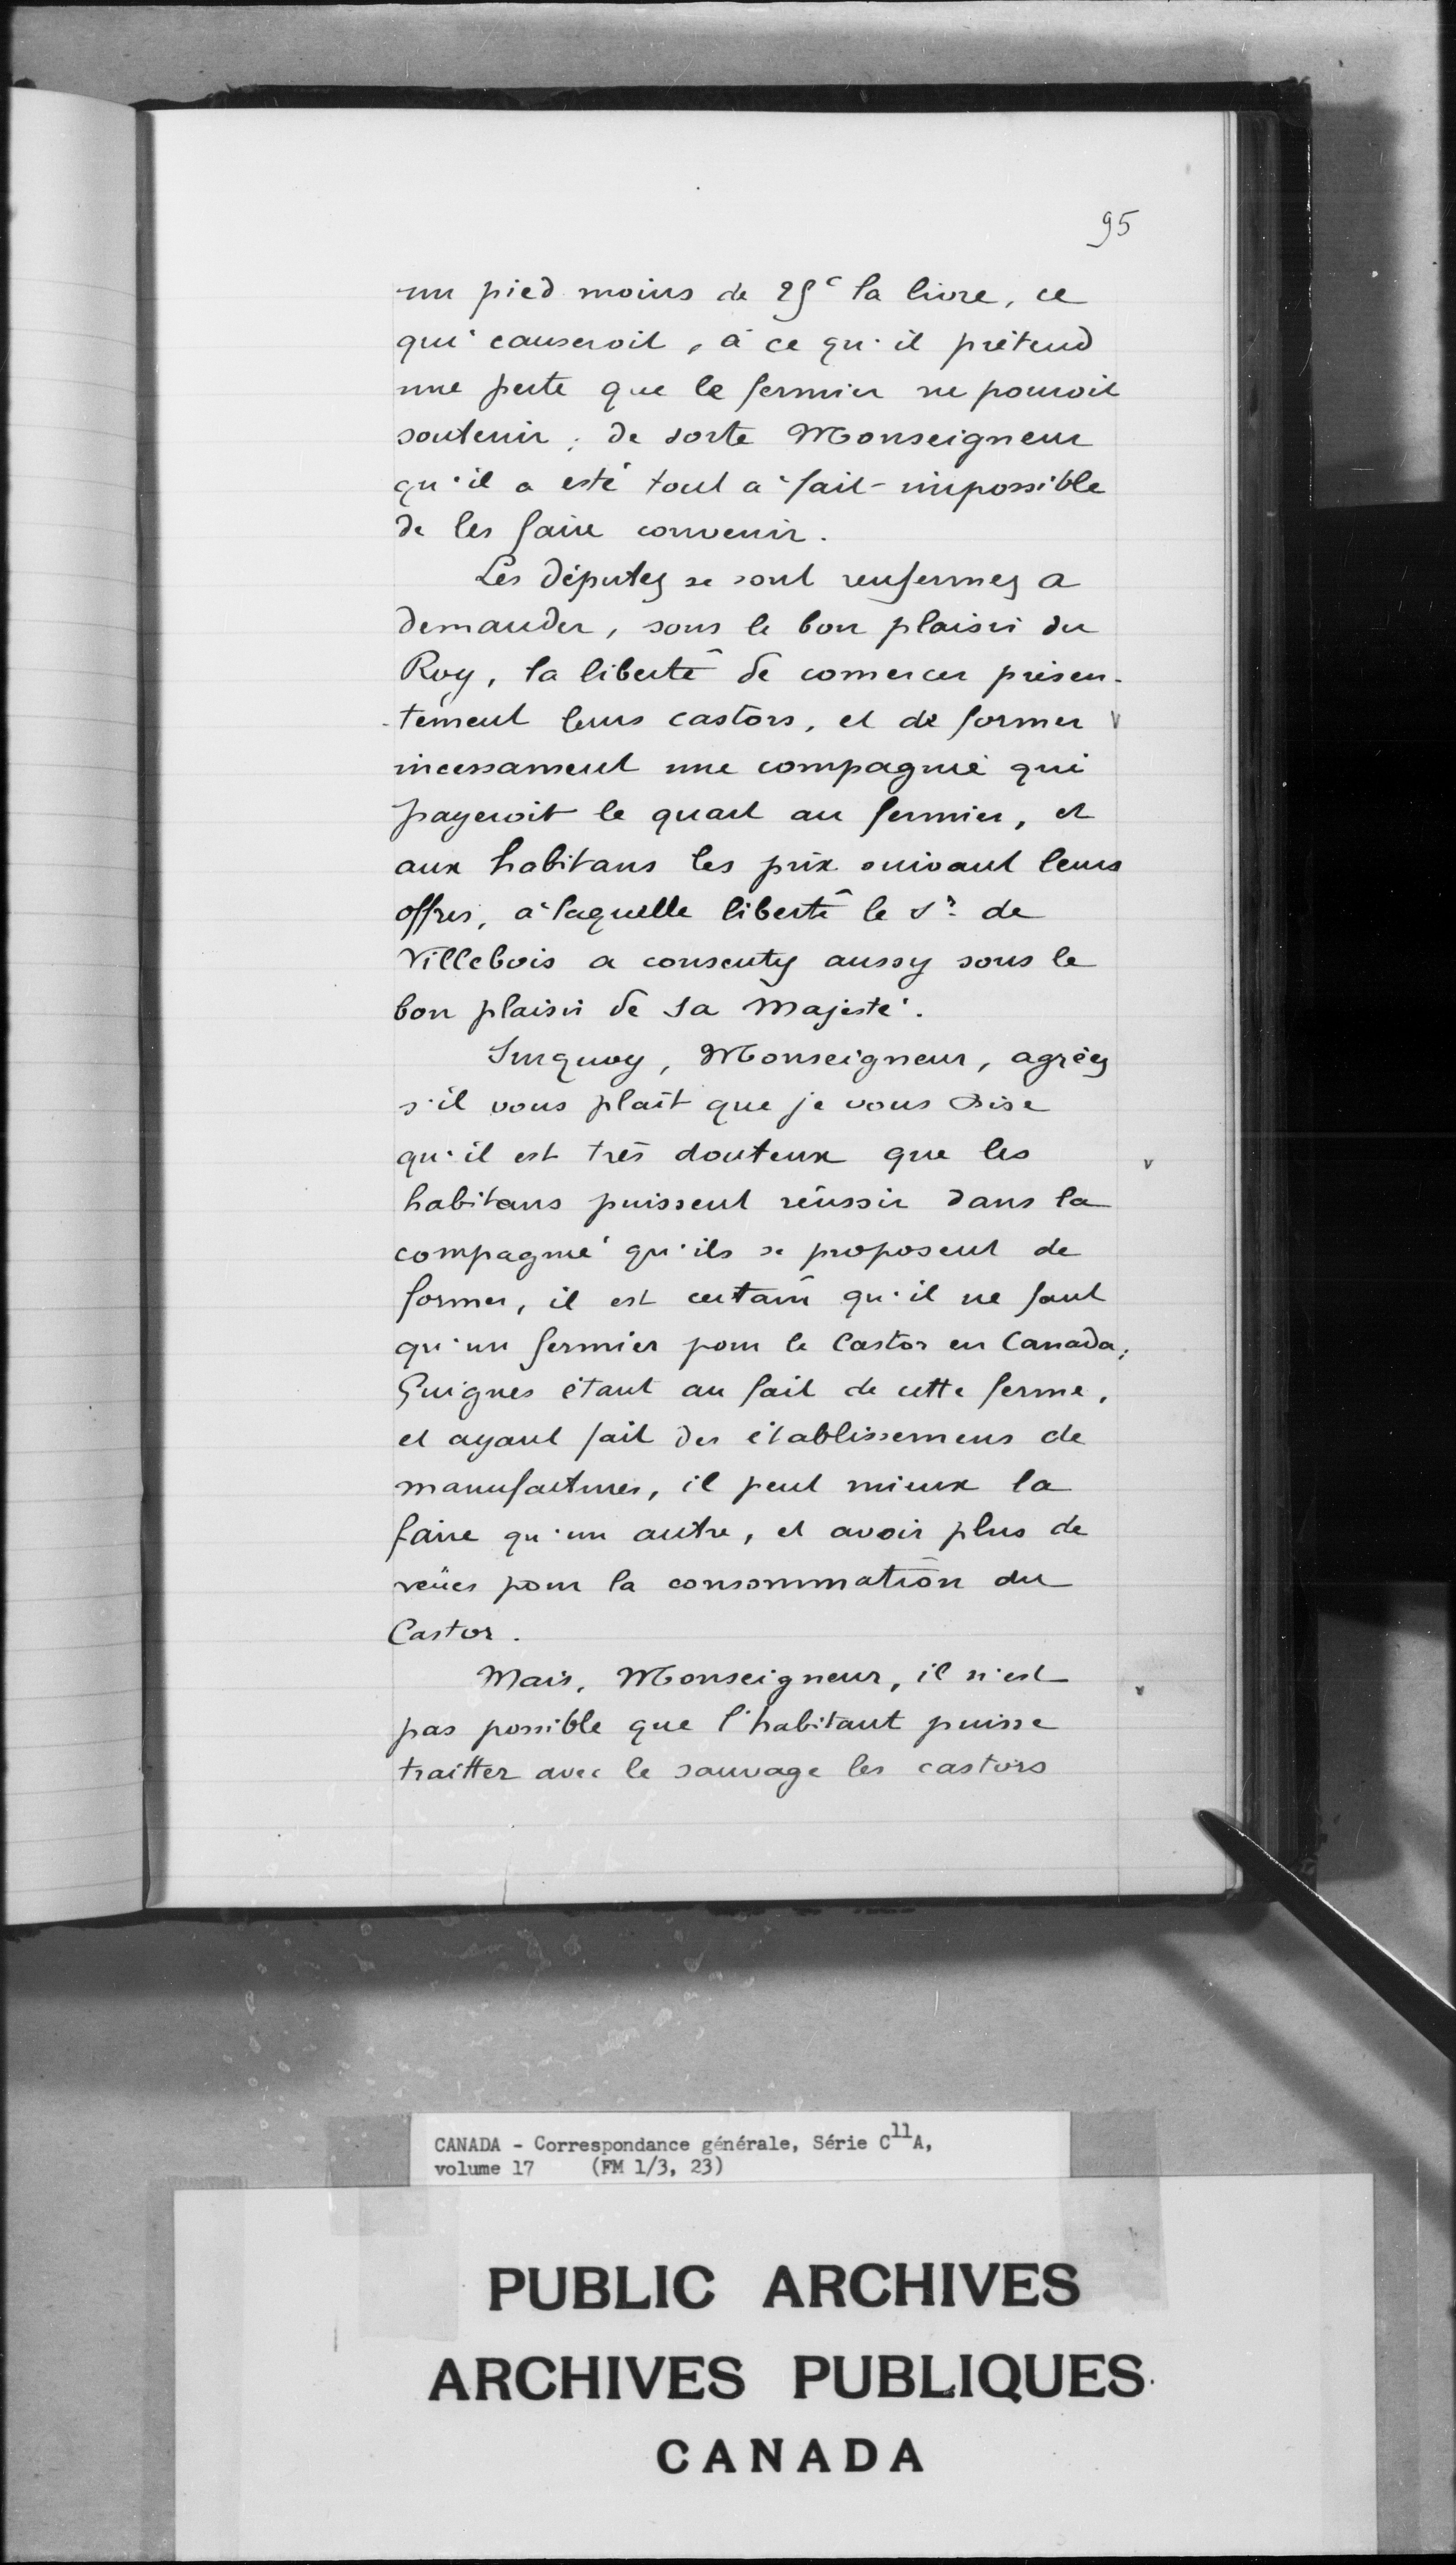 95
un pied moins de 25ᶜ la livre, ce
qui causeroit, à ce qu'il prétend
une perte que le fermier ne pouroit
soutenir; de sorte Monseigneur
qu'il a esté tout à fait impossible
de les faire convenir.
Les députez se sont renfermez a
demander, sous le bon plaisir du
Roy, la liberté de comercer présen-
tement leurs castors, et de former
incessament une compagnie qui
payeroit le quart au fermier, et
aux habitans les prix suivant leurs
offres, à laquelle liberté le Sr. de
Villebois a consenty aussy sous le
bon plaisir de Sa Majesté.
Surquoy, Monseigneur, agréez
s'il vous plaît que je vous dise
qu'il est très douteux que les
habitans puissent réussir dans la
compagnie qu'ils se proposent de
former, il est certain qu'il ne faut
qu'un fermier pour le Castor en Canada;
Guignes étant au fait de cette ferme,
et ayant fait des établissemens de
manufactures, il peut mieux la
faire qu'un autre, et avoir plus de
veües pour la consommation du
Castor.
Mais, Monseigneur, il n'est
pas possible que l'habitant puisse
traitter avec le sauvage les castors
CANADA - Correspondance générale, Série C11A,
volume 17 (FM 1/3, 23)
PUBLIC ARCHIVES
ARCHIVES PUBLIQUES
CANADA